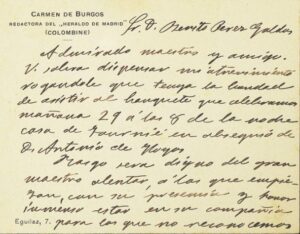 CARMEN DE BURGOS
REDACTORA DEL „HERALDO DE MADRID"
(COLOMBINE)
Sr. D. Benito Perez Galdos
Admirado maestro y amigo.
V. sabra dispensar mi atrevimiento
rogandole que tenga la bondad
de asistir al banquete que celebramos
mañana 29 a las 8 de la noche
casa de Tournié en obsequio de
D. Antonio de Hoyos.
Rasgo sera digno del gran
maestro alentar, á los que empie-
zan, con su presencia y honor
inmenso estar en su compañia
Eguilaz, 7.
para los que no reconocemos